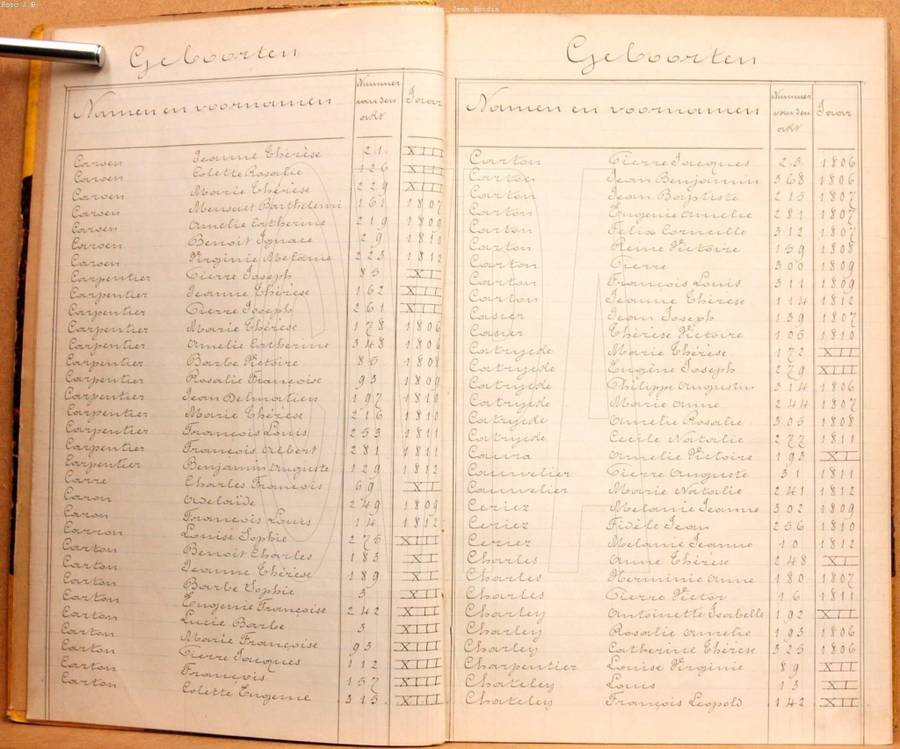 Geboorten
Namen en voornamen Nummer van den akt Jaar
Caroen Jeanne Thérèse 21 XIII
Caroen Colette Rosalie 126 XII
Caroen Marie Thérèse 229 XII
Caroen Barthelemi 161 1807
Caroen Amelie Catherine 219 1809
Caroen Benoit Ignace 29 1810
Caroen Virginie Melanie 223 1812
Carpentier Pierre Joseph 85 XI
Carpentier Jeanne Thérèse 162 XII
Carpentier Pierre Joseph 261 XIII
Carpentier Marie Thérèse 178 1806
Carpentier Amelie Catherine 348 1806
Carpentier Barbe Victoire 85 1808
Carpentier Rosalie Françoise 93 1809
Carpentier Jean Delmartien 197 1810
Carpentier Marie Thérèse 216 1810
Carpentier François Louis 253 1811
Carpentier François Albert 281 1811
Carpentier Benjamin Auguste 129 1812
Carre Charles François 69 XI
Caron Adelaïde 249 1809
Caron François Louis 14 1812
Carron Louise Sophie 275 XIII
Carton Benoit Charles 183 XI
Carton Jeanne Thérèse 189 XI
Carton Barbe Sophie 5 XII
Carton Eugenie Françoise 242 XII
Carton Lucie Barbe 3 XIII
Carton Marie Françoise 93 XIII
Carton Pierre Jacques 112 XIII
Carton François 157 XIII
Carton Colette Eugenie 315 XIII
Geboorten
Namen en voornamen Nummer van den akt Jaar
Carton Pierre Jacques 23 1806
Carton Jean Benjamin 368 1806
Carton Jean Baptiste 215 1807
Carton Eugenie Amelie 281 1807
Carton Felix Corneille 312 1807
Carton Reine Victoire 159 1808
Carton Pierre 300 1809
Carton François Louis 311 1809
Carton Jeanne Thérèse 114 1812
Casier Jean Joseph 139 1807
Casier Thérèse Victoire 105 1810
Catryjde Marie Thérèse 172 XII
Catryjde Eugine Joseph 279 XIII
Catryjde Philippe Augustin 314 1806
Catryjde Marie Anne 244 1807
Catryjde Amelie Rosalie 305 1808
Catryjde Cecile Natalie 277 1811
Caura Amelie Victoire 193 XI
Cauwelier Pierre Auguste 31 1811
Cauwelier Marie Natalie 241 1812
Ceriez Melanie Jeanne 302 1809
Ceriez Fidèle Jean 256 1810
Ceriez Melanie Jeanne 10 1812
Charles Anne Thérèse 248 XI
Charles Herminie Anne 180 1807
Charles Pierre Victor 16 1811
Charley Antoinette Isabelle 192 XII
Charley Rosalie Amelie 193 1806
Charley Catherine Thérèse 325 1806
Charpentier Louise Virginie 89 XI
Chateley Louis 13 XI
Chateley François Leopold 142 XII